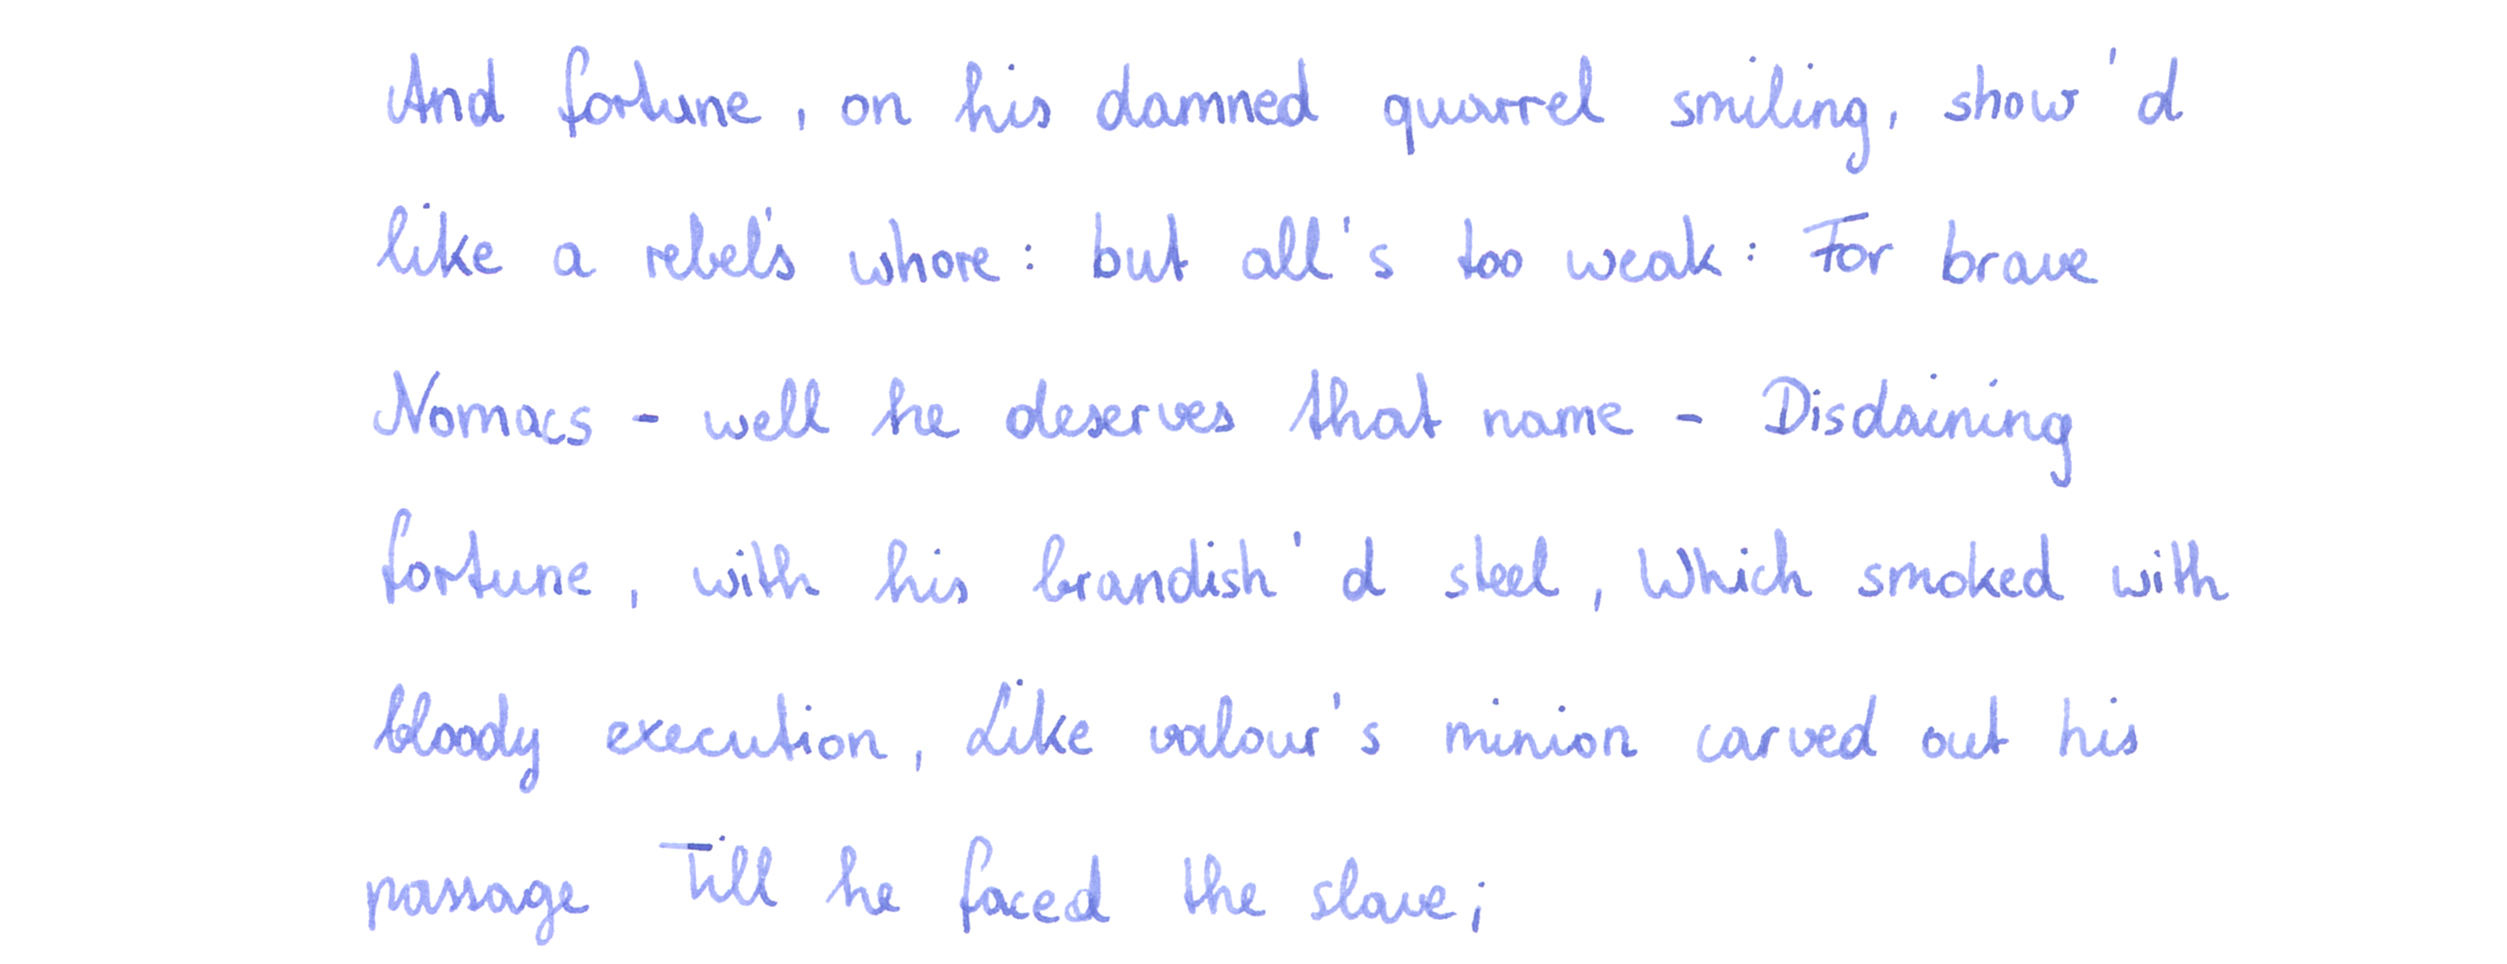 And fortune, on his damned quarrel smiling, show'd
like a rebel's whore: but all's too weak: For brave
Nomacs - well he deserves that name - Disdaining
fortune, with his brandish'd steel, Which smoked with
bloody execution, Like valour's minion carved out his
passage Till he faced the slave;